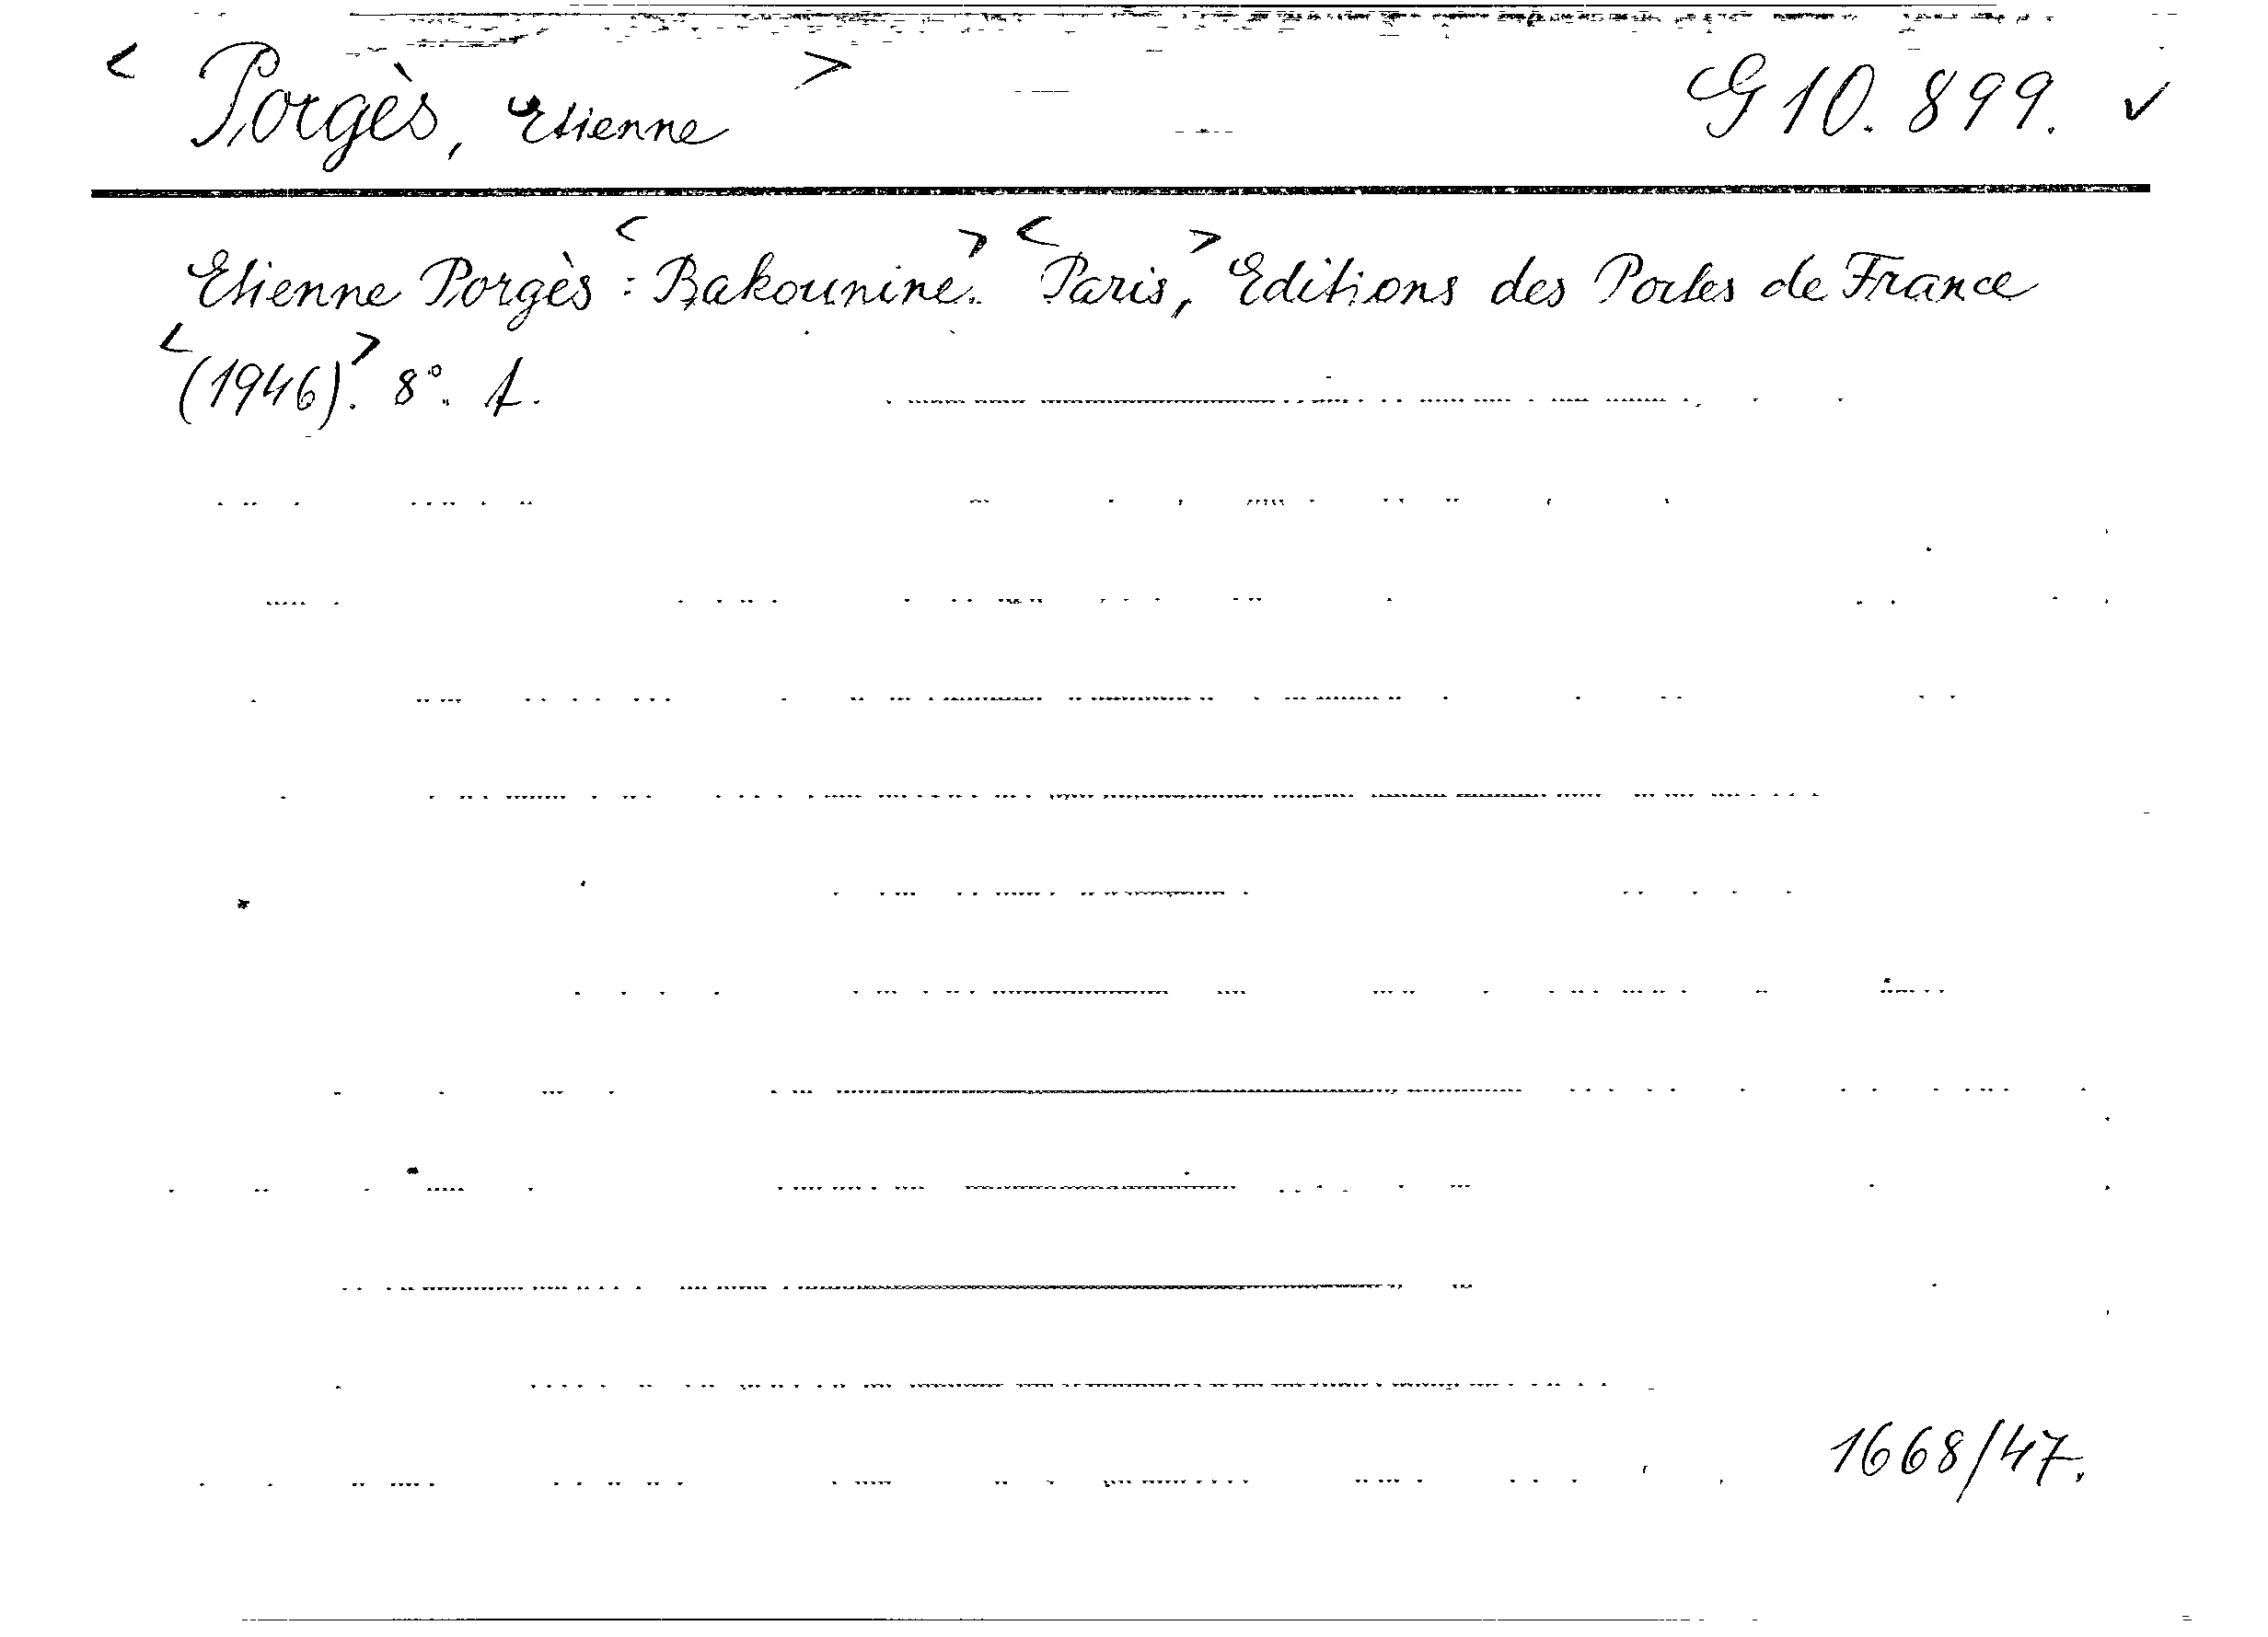 < Porgès, Etienne > G 10.899. ✓
Etienne Porgès : <Bakounine>. <Paris>, Editions des Portes de France
<(1946)>. 8°. A.
1668/47.